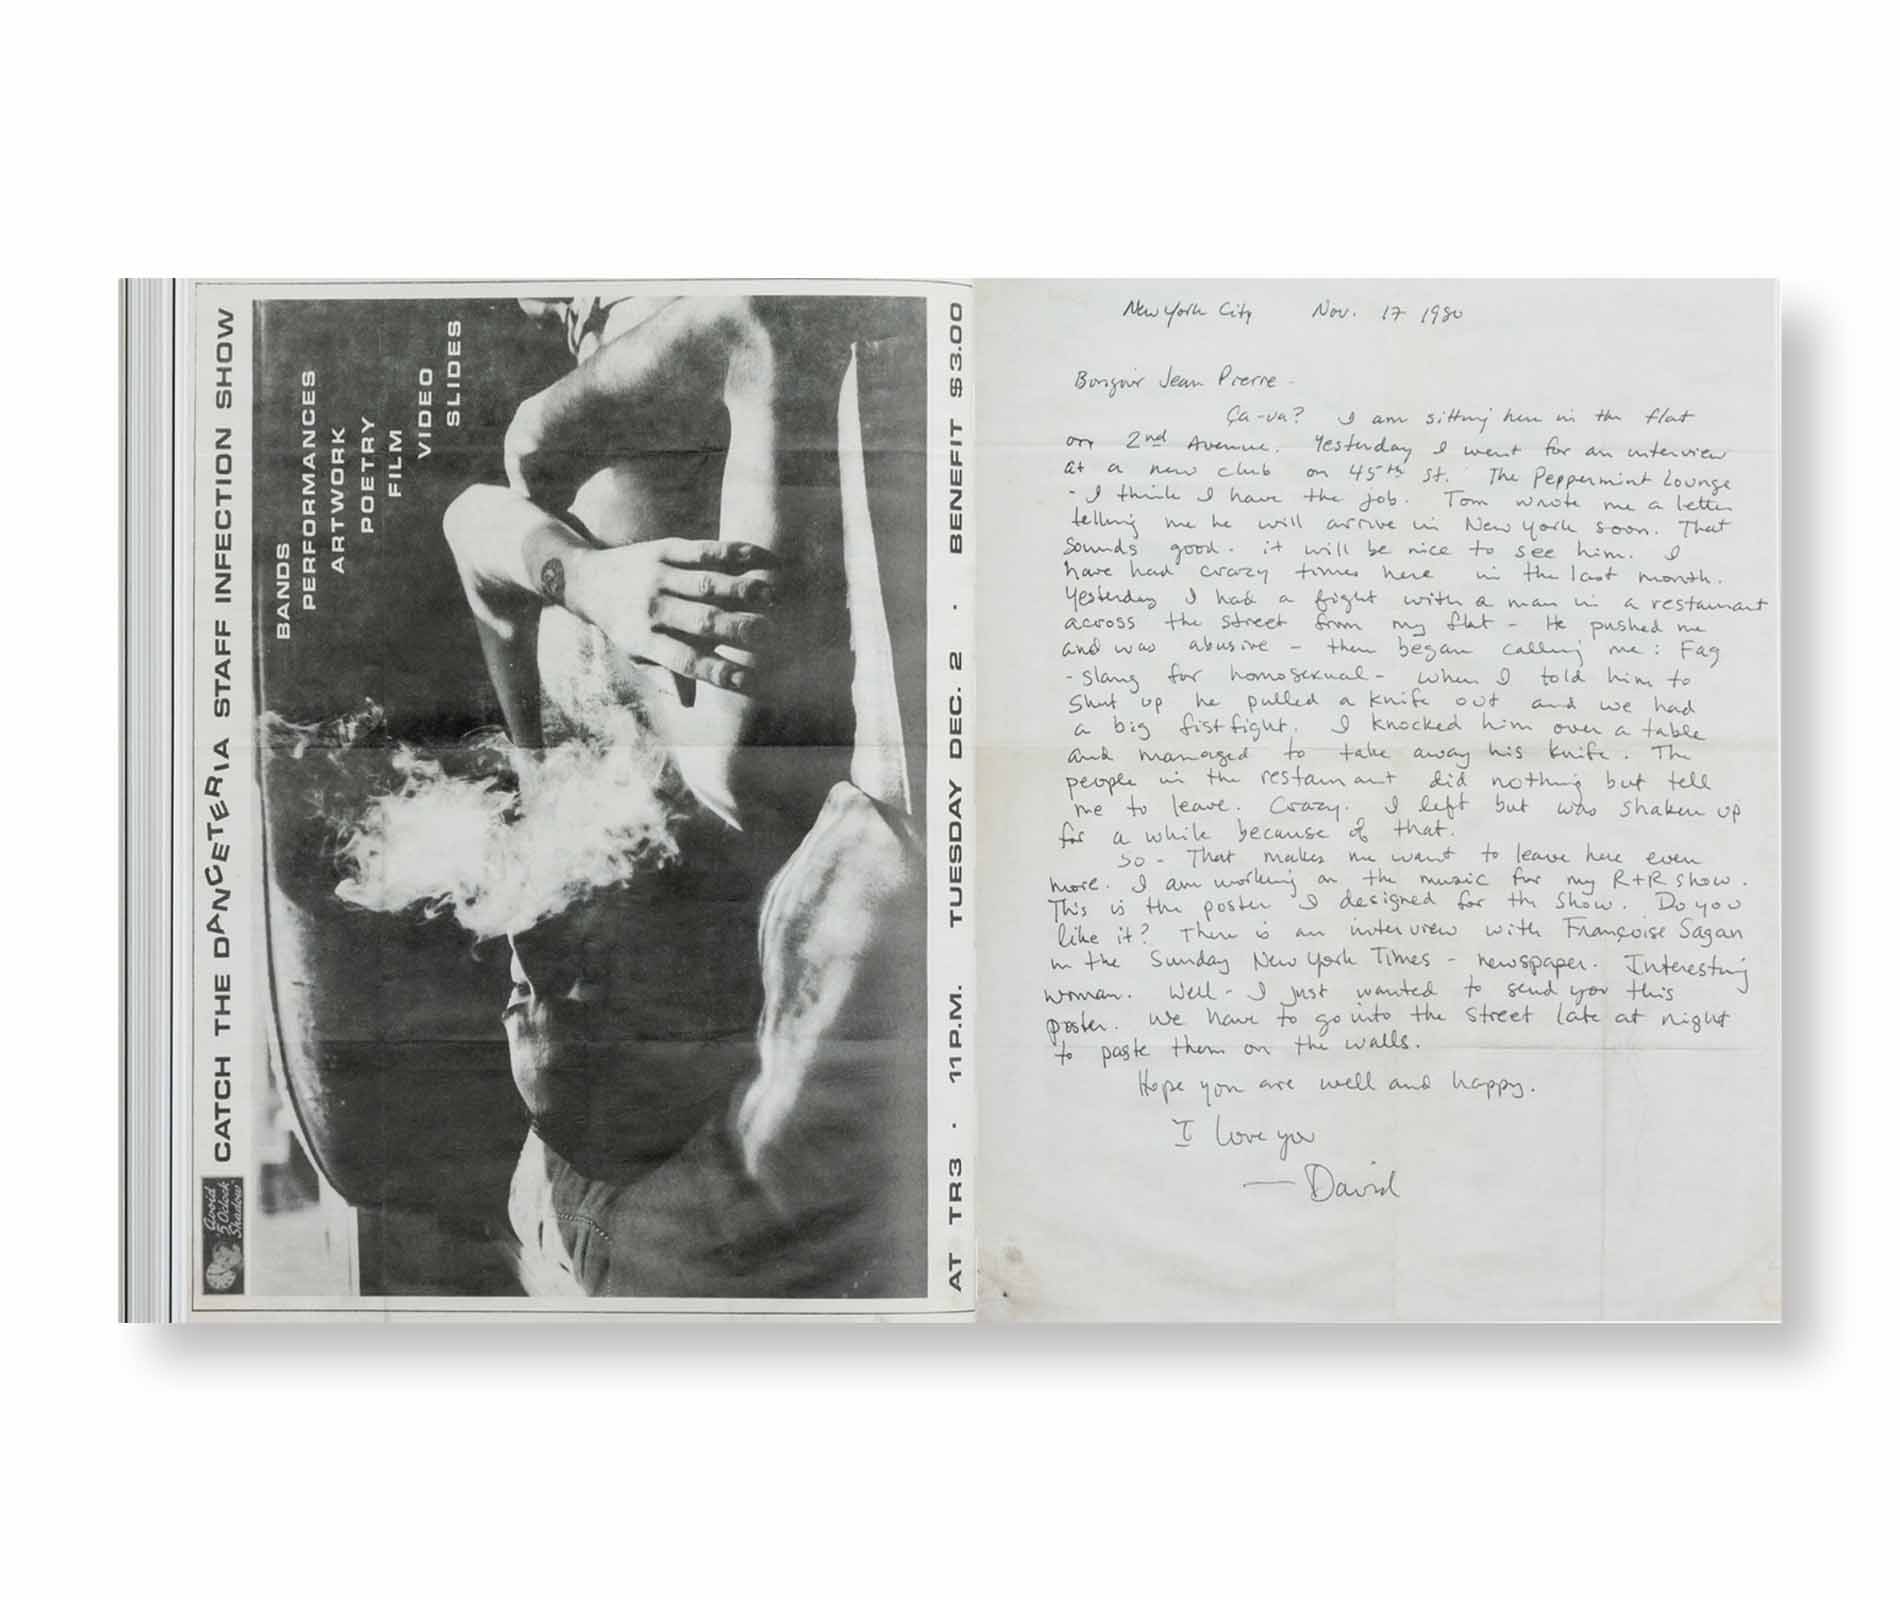 CATCH THE DANCETERIA STAFF INFECTION SHOW
BANDS
PERFORMANCES
ARTWORK
POETRY
FILM
VIDEO
SLIDES
AT TR3 · 11 P.M. TUESDAY DEC. 2 · BENEFIT $3.00
Avoid
5 O'clock
Shadow
New York City Nov. 17 1980
Bonjour Jean Pierre -
Ça-va? I am sitting here in the flat
on 2nd Avenue. Yesterday I went for an interview
at a new club on 45th St. The Peppermint Lounge
- I think I have the job. Tom wrote me a letter
telling me he will arrive in New York soon. That
sounds good. it will be nice to see him. I
have had crazy times here in the last month.
Yesterday I had a fight with a man in a restaurant
across the street from my flat - He pushed me
and was abusive - then began calling me: Fag
- slang for homosexual - when I told him to
shut up he pulled a knife out and we had
a big fistfight. I knocked him over a table
and managed to take away his knife. The
people in the restaurant did nothing but tell
me to leave. Crazy. I left but was shaken up
for a while because of that.
So - That makes me want to leave here even
more. I am working on the music for my R+R show.
This is the poster I designed for the show. Do you
like it? There is an interview with Françoise Sagan
in the Sunday New York Times - newspaper. Interesting
woman. Well - I just wanted to send you this
poster. We have to go into the street late at night
to paste them on the walls.
Hope you are well and happy.
I love you
— David